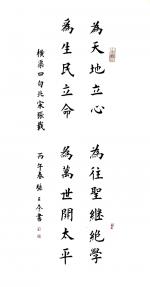 為天地立心
爲生民立命
橫渠四句北宋張載
為往聖継絕學
為萬世開太平
丙午春 書